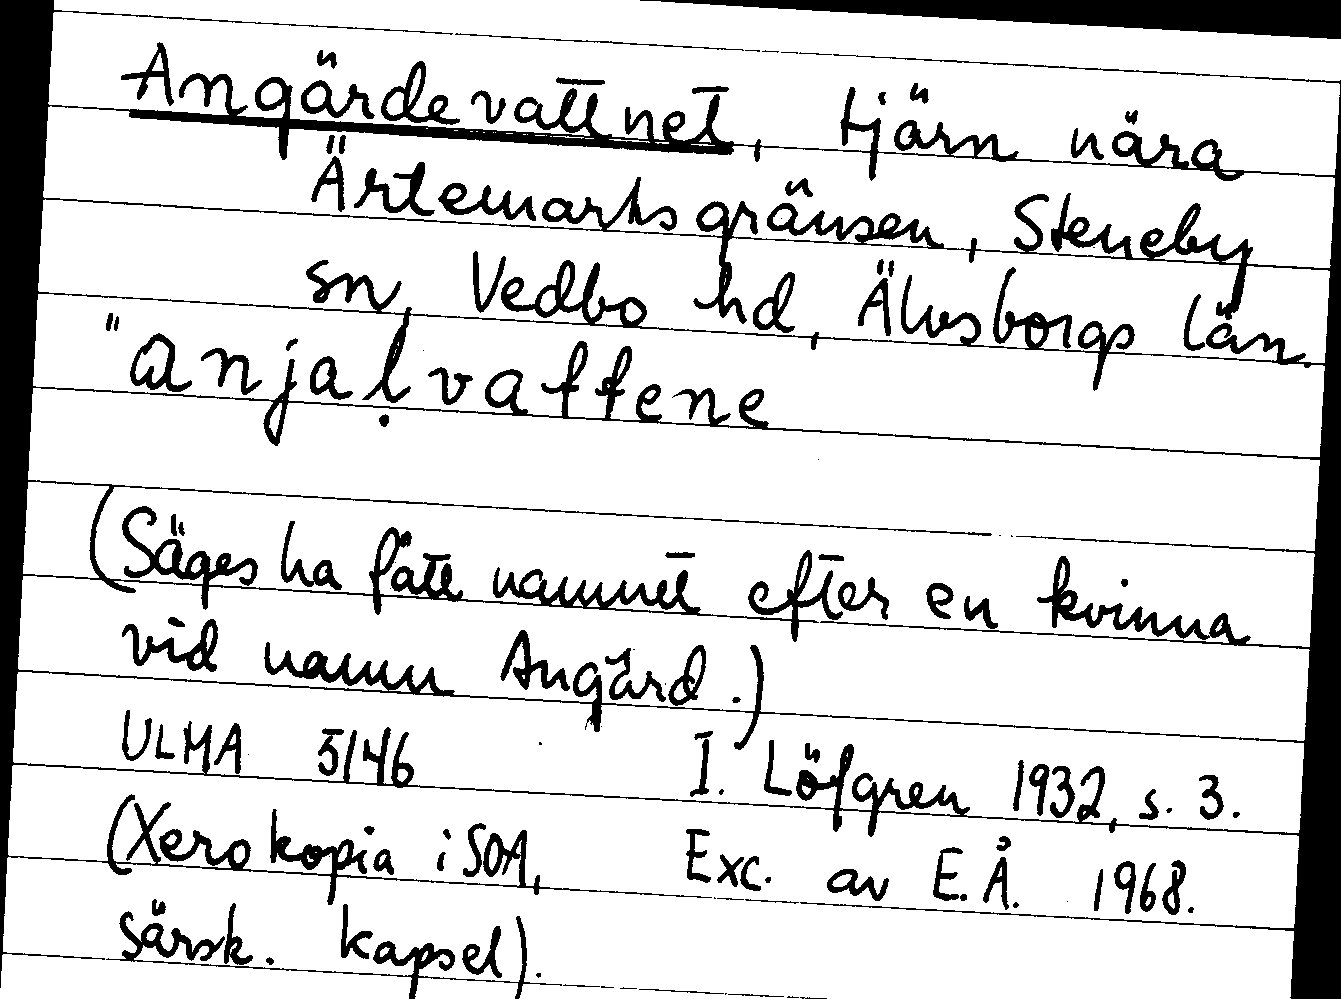 Angärdevattnet, tjärn nära
Ärtemarksgränsen, Steneby
sn, Vedbo hd, Älvsborgs län.
"anjaḷvattene
(Säges ha fått namnet efter en kvinna
vid namn Angärd.)
ULMA 5146 I. Löfgren 1932, s. 3.
(Xerokopia i SOA, Exc. av E.Å. 1968.
särsk. kapsel).